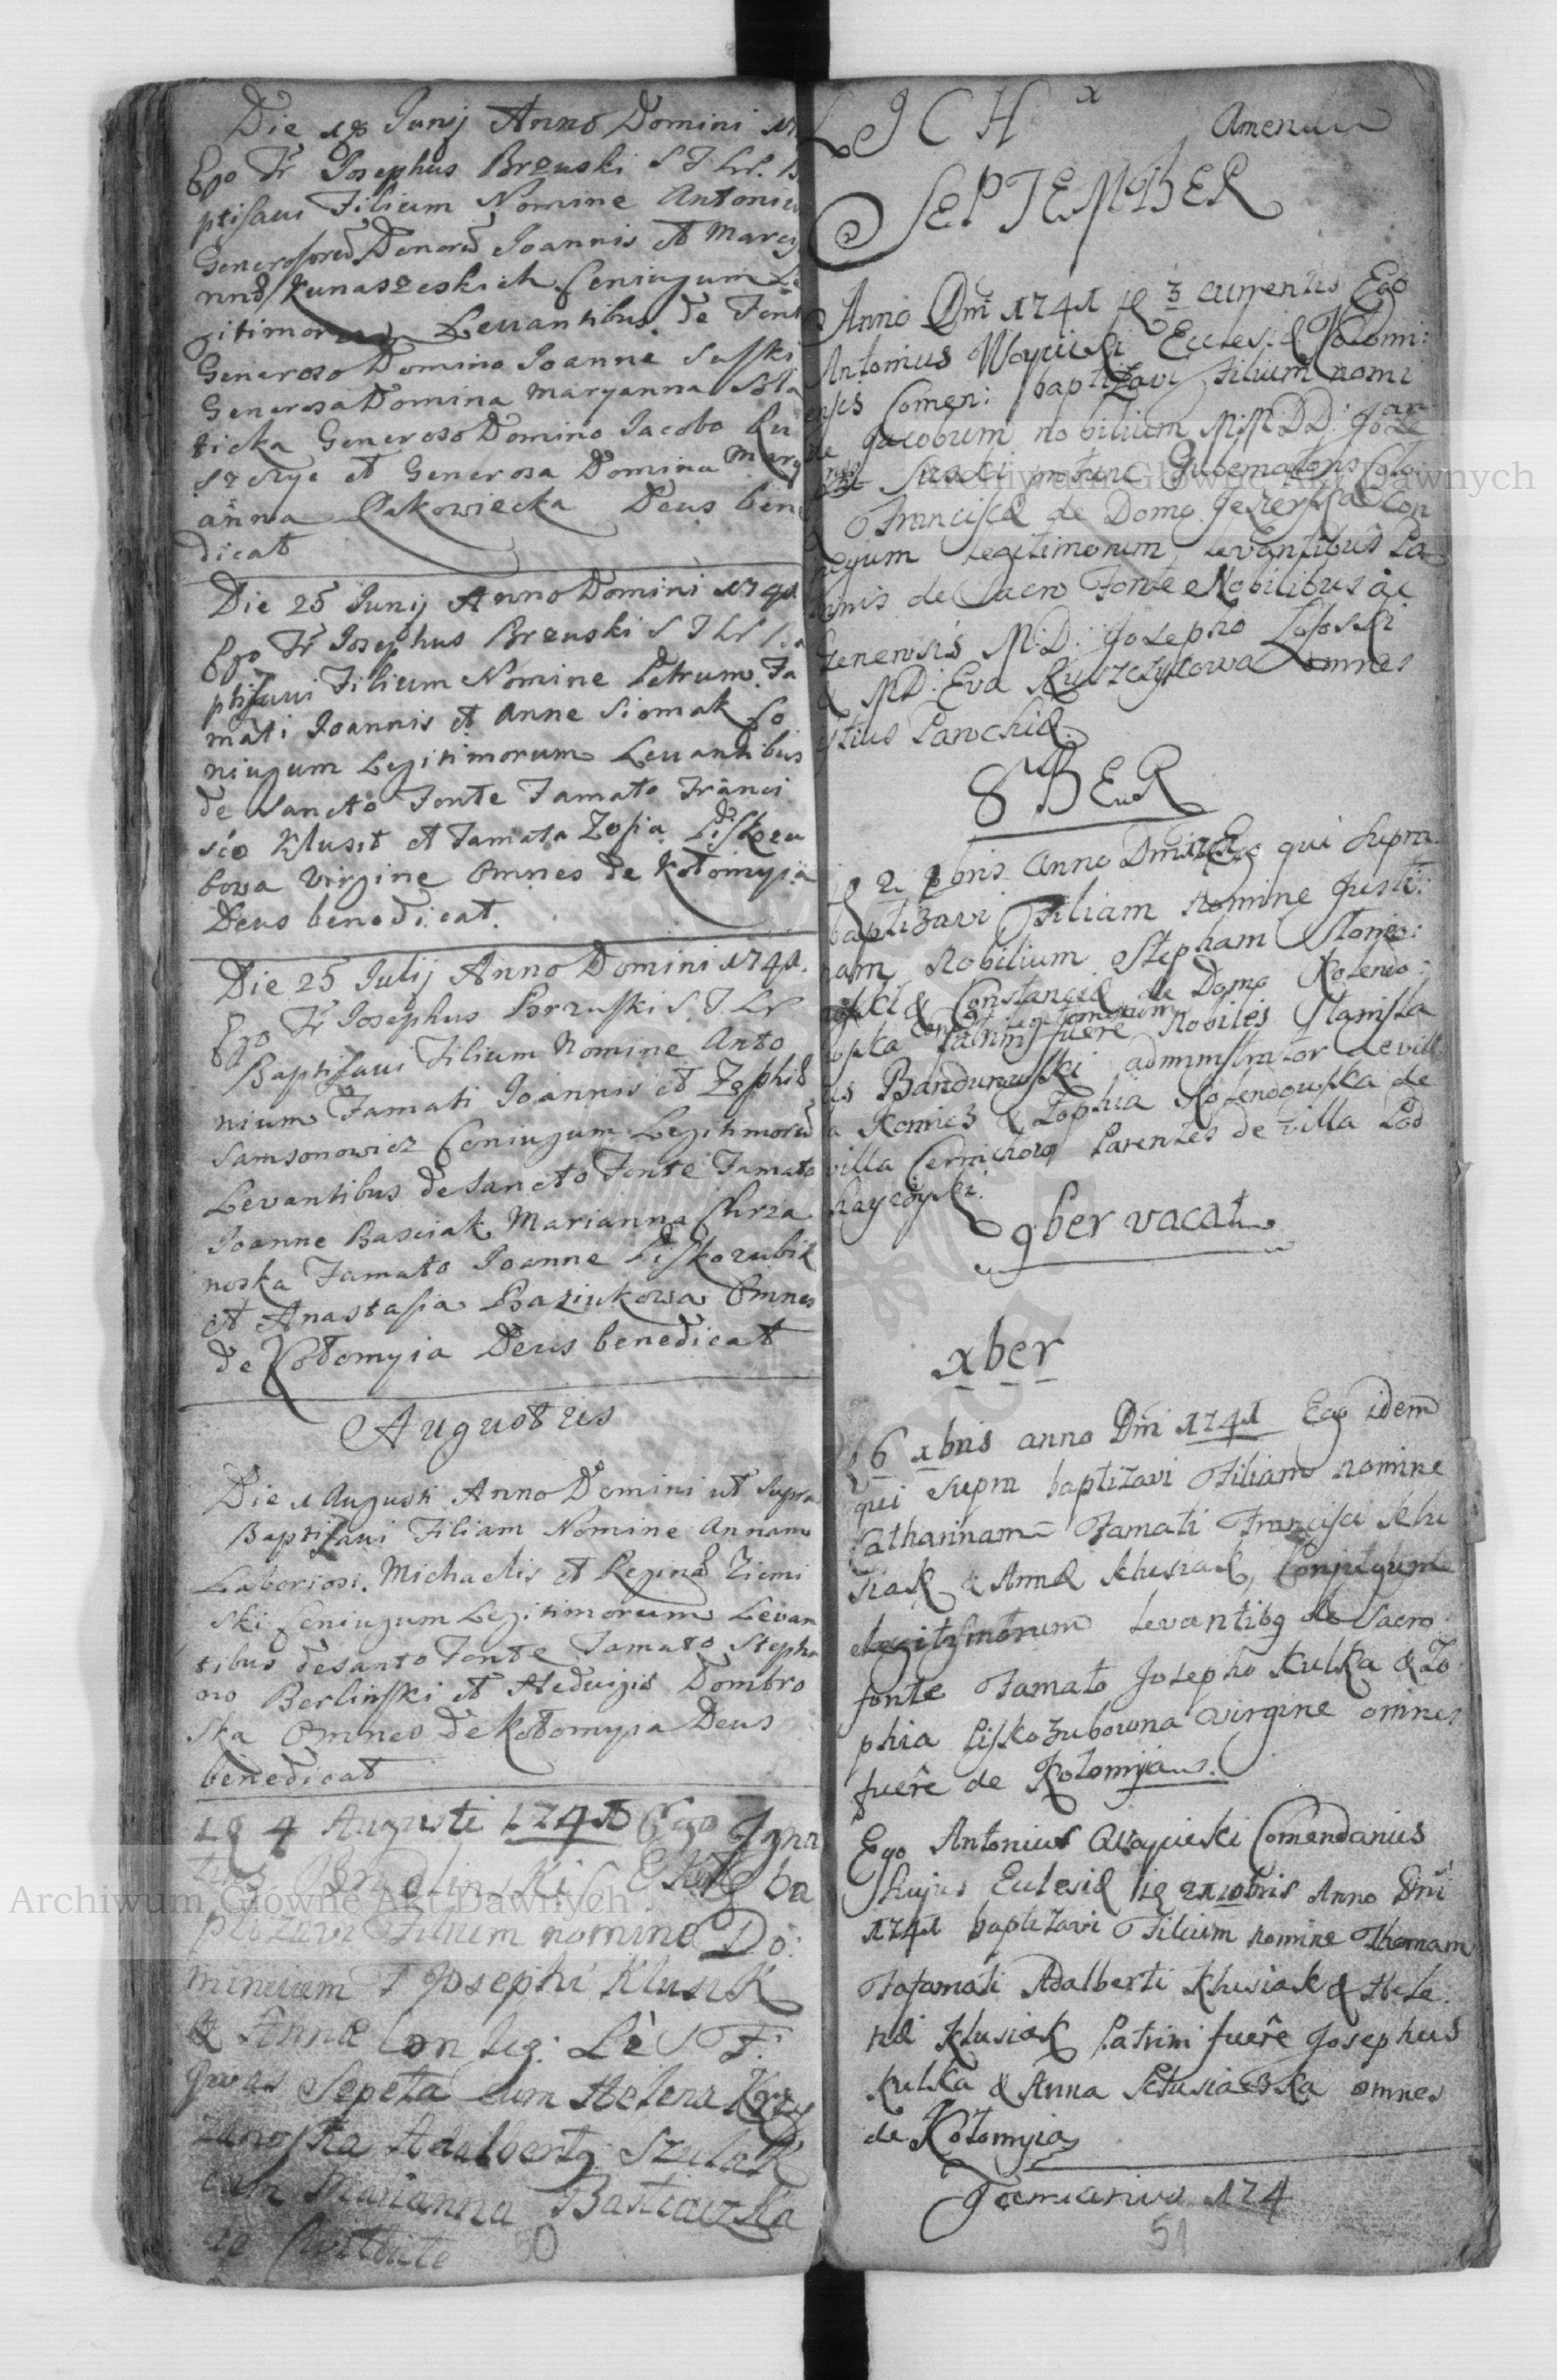 Die 18 Junij Anno Domini 17
Ego Fr Josephus Brzuski S T Lr. B
ptisavi Filium Nomine Antoniu
Generosoru Donoru Joannis et Marcy
nnæ Kunaszeskich Coniugum Le
gitimorum Levantibus de Font
Generoso Domino Joanne Suski
Generosa Domina Maryanna
ticka Generoso Domino Jacobo Ru
szczyc et Generosa Domina Mary
anna Pakowiecka Deus bene
dicat
Die 25 Junij Anno Domini 1741
Ego Fr Josephus Brzuski S T Lr Ba
ptisavi Filium Nomine Petrum Fa
mati Joannis et Anne Siomak Co
niugum Legitimorum Levantibus
de Sancto Fonte Famato Franci
sco Klusik et Famata Zofia Liskozu
bowa Virgine Omnes de Kołomyia
Deus benedicat.
Die 25 Julij Anno Domini 1741.
Ego Fr Josephus Brzuski S. T. Lr
Baptisavi Filium Nomine Anto
nium Famati Joannis et Zophiæ
Samsonowicz Coniugum Legitimoru
Levantibus de Sancto Fonte Famato
Joanne Basciak Marianna Chrza
noska Famato Joanne Liskozubik
et Anastasia Baziukowa Omnes
de Kołomyia Deus benedicat
Augustus
Die 1 Augusti Anno Domini ut supra
Baptisavi Filiam Nomine Annam
Laboriosi Michaelis et Reginæ Ziemi
ski Coniugum Legitimorum Levan
tibus de santo Fonte Famato Stepha
no Berlinski et Hedvigis Dombro
ska Omnes de Kołomyia Deus
benedicat
4 Augusti 1741 Ego Igna
tius ba
ptizavi Filium nomine Do:
minicum F Josephi Klusik
& Annæ Con leg: Le S F:
Sepeta cum Helena Krzy
zanoska Adalbertg Szulak
cum Marianna Basciaczka

Amen
SEPTEMBER
Anno Dni 1741 3 currentis Ego
Antonius Woycicki Ecclesiæ Kołomi:
ensis Comen: baptizavi Filium nomi
ne Jacobum nobilium M:M:D:D: Joan
nis Suski protunc Gubernatoris
& Franciscæ de Domo Jezerska Con
jugum legitimorum levantibus Pa
trinis de Sacro Fonte Nobilibus ac
M:D: Josepho Lososki
& MD: Eva Ruszczycowa omnes
istius Parochiæ.
8BER
2 8bris Anno Dni 1741 Ego qui supra
baptizavi Filiam Nomine Justi:
nam Nobilium Stephani Słonie:
& Constanciæ de Domo Kolendo:
wska Conj: legitimorum
Patrini fuere Nobiles Stanisla
us Bandurowski administrator de villa
Kamiez & Zophia Kolendowska de
villa Parentes de villa Pod
hayczyki.
9ber vacat
xber
6 xbris anno Dni 1741 Ego idem
qui supra baptizavi Filiam nomine
Catharinam Famati Francisci Klu
siak & Annæ Klusiak, Conjugum
legitimorum levantibg de Sacro
fonte Famato Josepho Kulka & Zo
phia Liskozubowna Virgine omnes
fuere de Kołomyia.
Ego Antonius Woycicki Comendarius
hujus Eclesiæ 21 xbris Anno Dni
1741 baptizavi Filium nomine Thomam
Fafamati Adalberti Klusiak & Hele
næ Klusiak Patrini fuere Josephus
Kulka & Anna Klusiaczka omnes
de Kołomyia
Januarius 174
50
51
Archiwum Główne Akt Dawnych
Archiwum Główne Akt Dawnych